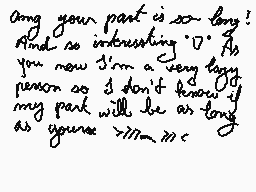 omg your part is so long!
And so interessting °▽° As
you now I'm a very lazy
person so I don't know if
my part will be as long
as yours >///~ ///<